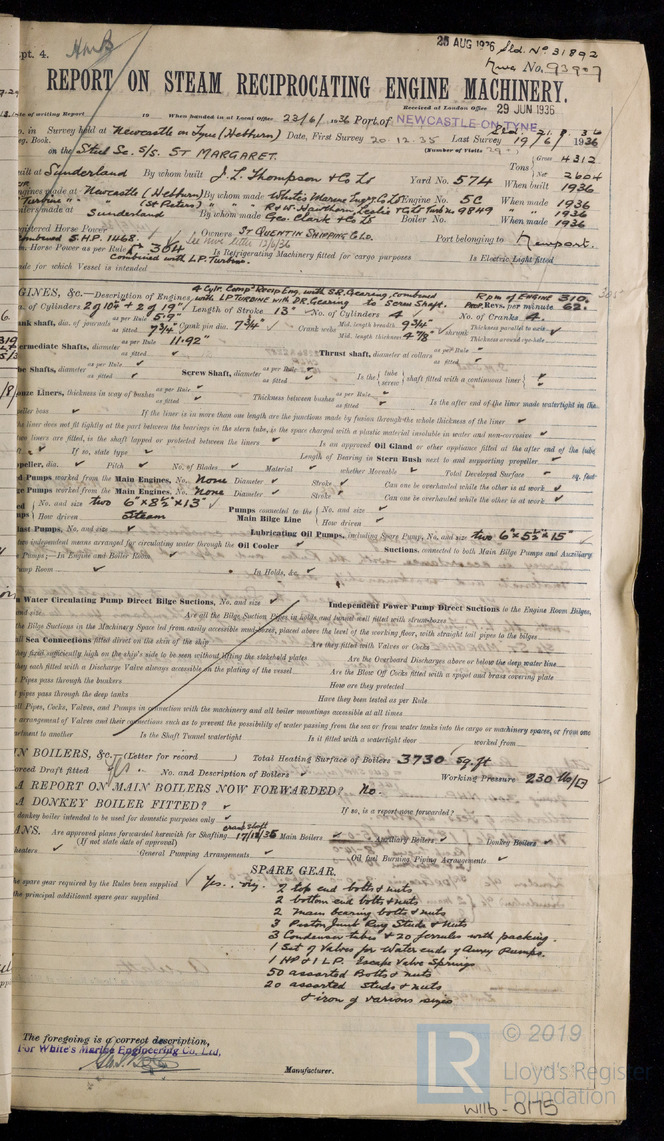 pt. 4.
25 AUG 1936 Sld. No 31892
Nwc No. 93907
REPORT ON STEAM RECIPROCATING ENGINE MACHINERY.
Received at London Office 29 JUN 1936
Date of writing Report 19 When handed in at Local Office 22/6/1936 Port of NEWCASTLE-ON-TYNE
No. in Survey held at Newcastle on Tyne (Hebburn) Date, First Survey 20.12.35 Last Survey 19/6/1936
Reg. Book. (Number of Visits
on the Steel Sc. S/S. ST MARGARET.
Tons Gross 4312
Net 2604
built at Sunderland By whom built J. L. Thompson & Co Ld Yard No. 574 When built 1936
Engines made at Newcastle (Hebburn) By whom made White's Marine Engrg Co Ld Engine No. 5C When made 1936
Turbine " " (St Peters) " " R & W. Hawthorn Leslie & Co Ld Turb No 9849 " 1936
made at Sunderland By whom made Geo. Clark & Co Ld Boiler No. When made 1936
Registered Horse Power Owners St Quentin Shipping Co Ld. Port belonging to Newport.
Combined S.H.P. 1468.
Nom. Horse Power as per Rule 364 Is Refrigerating Machinery fitted for cargo purposes Is Electric Light fitted
Combined with L.P. Turbine.
Trade for which Vessel is intended
ENGINES, &c.—Description of Engines 4 Cylr. Compd Recip Eng. with S.R. Gearing, combined with L.P. TURBINE with D.R. Gearing to Screw Shaft.
Rpm of ENGINE 310.
Dia. of Cylinders 2 of 10½" & 2 of 19" Length of Stroke 13" No. of Cylinders 4 Revs. per minute 62.
No. of Cranks 4.
Crank shaft, dia. of journals as per Rule as fitted 7¾" Crank pin dia. 7¾" Crank webs Mid. length breadth 9¾" Mid. length thickness 4⅞" shrunk Thickness parallel to axis
Thickness around eye-hole
Intermediate Shafts, diameter as per Rule 11.92" as fitted Thrust shaft, diameter at collars as per Rule as fitted
Tube Shafts, diameter as per Rule as fitted Screw Shaft, diameter as per Rule as fitted Is the tube screw shaft fitted with a continuous liner
Bronze Liners, thickness in way of bushes as per Rule as fitted Thickness between bushes as per Rule as fitted Is the after end of the liner made watertight in the
propeller boss If the liner is in more than one length are the junctions made by fusion through the whole thickness of the liner
the liner does not fit tightly at the part between the bearings in the stern tube, is the space charged with a plastic material insoluble in water and non-corrosive
two liners are fitted, is the shaft lapped or protected between the liners Is an approved Oil Gland or other appliance fitted at the after end of the tube
If so, state type Length of Bearing in Stern Bush next to and supporting propeller
Propeller, dia. Pitch No. of Blades Material whether Moveable Total Developed Surface sq. feet
Feed Pumps worked from the Main Engines, No. None Diameter Stroke Can one be overhauled while the other is at work
Bilge Pumps worked from the Main Engines, No. None Diameter Stroke Can one be overhauled while the other is at work
No. and size two 6" x 8½" x 13" Pumps connected to the Main Bilge Line No. and size
How driven Steam How driven
Ballast Pumps, No. and size Lubricating Oil Pumps, including Spare Pump, No. and size two 6" x 5½" x 15"
two independent means arranged for circulating water through the Oil Cooler Suctions, connected to both Main Bilge Pumps and Auxiliary
Pumps;—In Engine and Boiler Room
Pump Room In Holds, &c.
Main Water Circulating Pump Direct Bilge Suctions, No. and size Independent Power Pump Direct Suctions to the Engine Room Bilges,
and size Are all the Bilge Suction Pipes in holds and tunnel well fitted with strum-boxes
the Bilge Suctions in the Machinery Space led from easily accessible mud-boxes, placed above the level of the working floor, with straight tail pipes to the bilges
all Sea Connections fitted direct on the skin of the ship Are they fitted with Valves or Cocks
they fixed sufficiently high on the ship's side to be seen without lifting the stokehold plates Are the Overboard Discharges above or below the deep water line
they each fitted with a Discharge Valve always accessible on the plating of the vessel Are the Blow Off Cocks fitted with a spigot and brass covering plate
Pipes pass through the bunkers How are they protected
pipes pass through the deep tanks Have they been tested as per Rule
all Pipes, Cocks, Valves, and Pumps in connection with the machinery and all boiler mountings accessible at all times
arrangement of Valves and their connections such as to prevent the possibility of water passing from the sea or from water tanks into the cargo or machinery spaces, or from one
compartment to another Is the Shaft Tunnel watertight Is it fitted with a watertight door worked from
MAIN BOILERS, &c.—(Letter for record ) Total Heating Surface of Boilers 3730 sq.ft
Forced Draft fitted No. and Description of Boilers Working Pressure 230 lbs/□
IS A REPORT ON MAIN BOILERS NOW FORWARDED? No.
IS A DONKEY BOILER FITTED? If so, is a report now forwarded?
donkey boiler intended to be used for domestic purposes only
PLANS. Are approved plans forwarded herewith for Shafting crank shaft 17/12/35 Main Boilers Auxiliary Boilers Donkey Boilers
(If not state date of approval)
heaters General Pumping Arrangements Oil fuel Burning Piping Arrangements
SPARE GEAR.
the spare gear required by the Rules been supplied Yes. viz.
the principal additional spare gear supplied
2 top end bolts & nuts
2 bottom end bolts & nuts
2 main bearing bolts & nuts
3 Piston Junk Ring Studs & Nuts
3 Condenser tubes & 20 ferrules with packing.
1 Set of Valves for Water ends of Auxy Pumps.
1 HP & 1 L.P. Escape Valve Springs
50 assorted Bolts & nuts
20 assorted Studs & nuts
& iron of various sizes
The foregoing is a correct description,
For White's Marine Engineering Co. Ltd,
Manufacturer.
LR © 2019
Lloyd's Register
Foundation
W116-0175